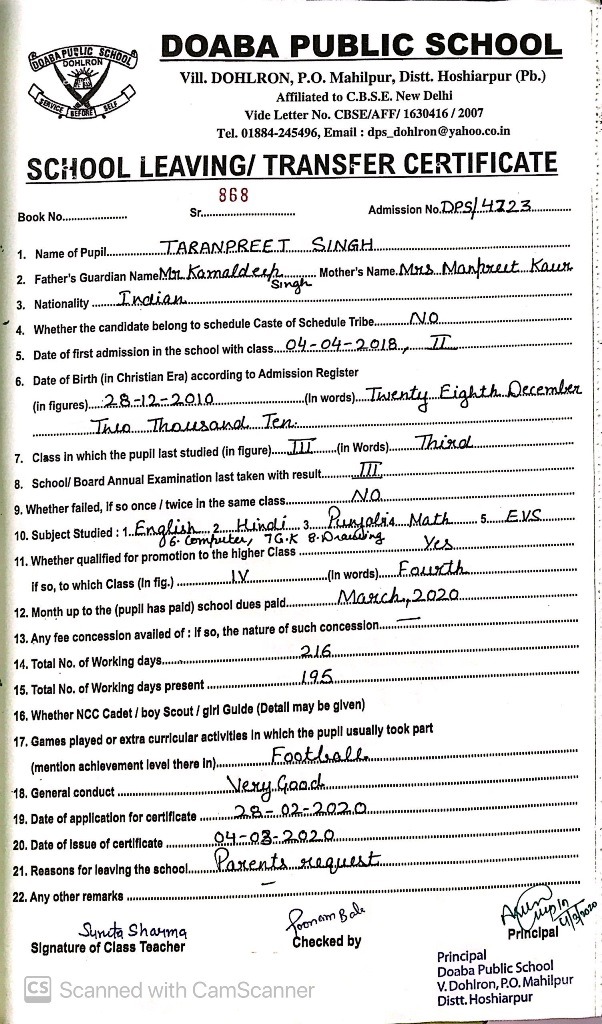 DOABA PUBLIC SCHOOL
DOHLRON
SERVICE BEFORE SELF
DOABA PUBLIC SCHOOL
Vill. DOHLRON, P.O. Mahilpur, Distt. Hoshiarpur (Pb.)
Affiliated to C.B.S.E. New Delhi
Vide Letter No. CBSE/AFF/ 1630416 / 2007
Tel. 01884-245496, Email : dps_dohlron@yahoo.co.in
SCHOOL LEAVING/ TRANSFER CERTIFICATE
Book No. Sr. 868 Admission No. DPS/4723
1. Name of Pupil. TARANPREET SINGH
2. Father's Guardian Name Mr Kamaldeep Singh Mother's Name. Mrs Manpreet Kaur
3. Nationality Indian
4. Whether the candidate belong to schedule Caste of Schedule Tribe. NO
5. Date of first admission in the school with class. 04-04-2018, II
6. Date of Birth (in Christian Era) according to Admission Register
(in figures). 28-12-2010 (In words) Twenty Eighth December
Two Thousand Ten.
7. Class in which the pupil last studied (in figure) III (in Words) Third
8. School/ Board Annual Examination last taken with result III
9. Whether failed, if so once / twice in the same class. NO
10. Subject Studied : 1. English 2. Hindi 3. Punjabi 4. Math 5. EVS
6. Computer, 7 G.K 8. Drawing
11. Whether qualified for promotion to the higher Class Yes
if so, to which Class (In fig.) IV (In words) Fourth
12. Month up to the (pupil has paid) school dues paid. March, 2020
13. Any fee concession availed of : If so, the nature of such concession. —
14. Total No. of Working days. 216
15. Total No. of Working days present 195
16. Whether NCC Cadet / boy Scout / girl Guide (Detail may be given)
17. Games played or extra curricular activities in which the pupil usually took part
(mention achievement level there in). Football
18. General conduct Very Good
19. Date of application for certificate 28-02-2020
20. Date of Issue of certificate 04-03-2020
21. Reasons for leaving the school. Parents request
22. Any other remarks —
Sunita Sharma
Signature of Class Teacher
Poonam Bala
Checked by
Principal 4/3/2020
Principal
Doaba Public School
V. Dohlron, P.O. Mahilpur
Distt. Hoshiarpur
CS Scanned with CamScanner